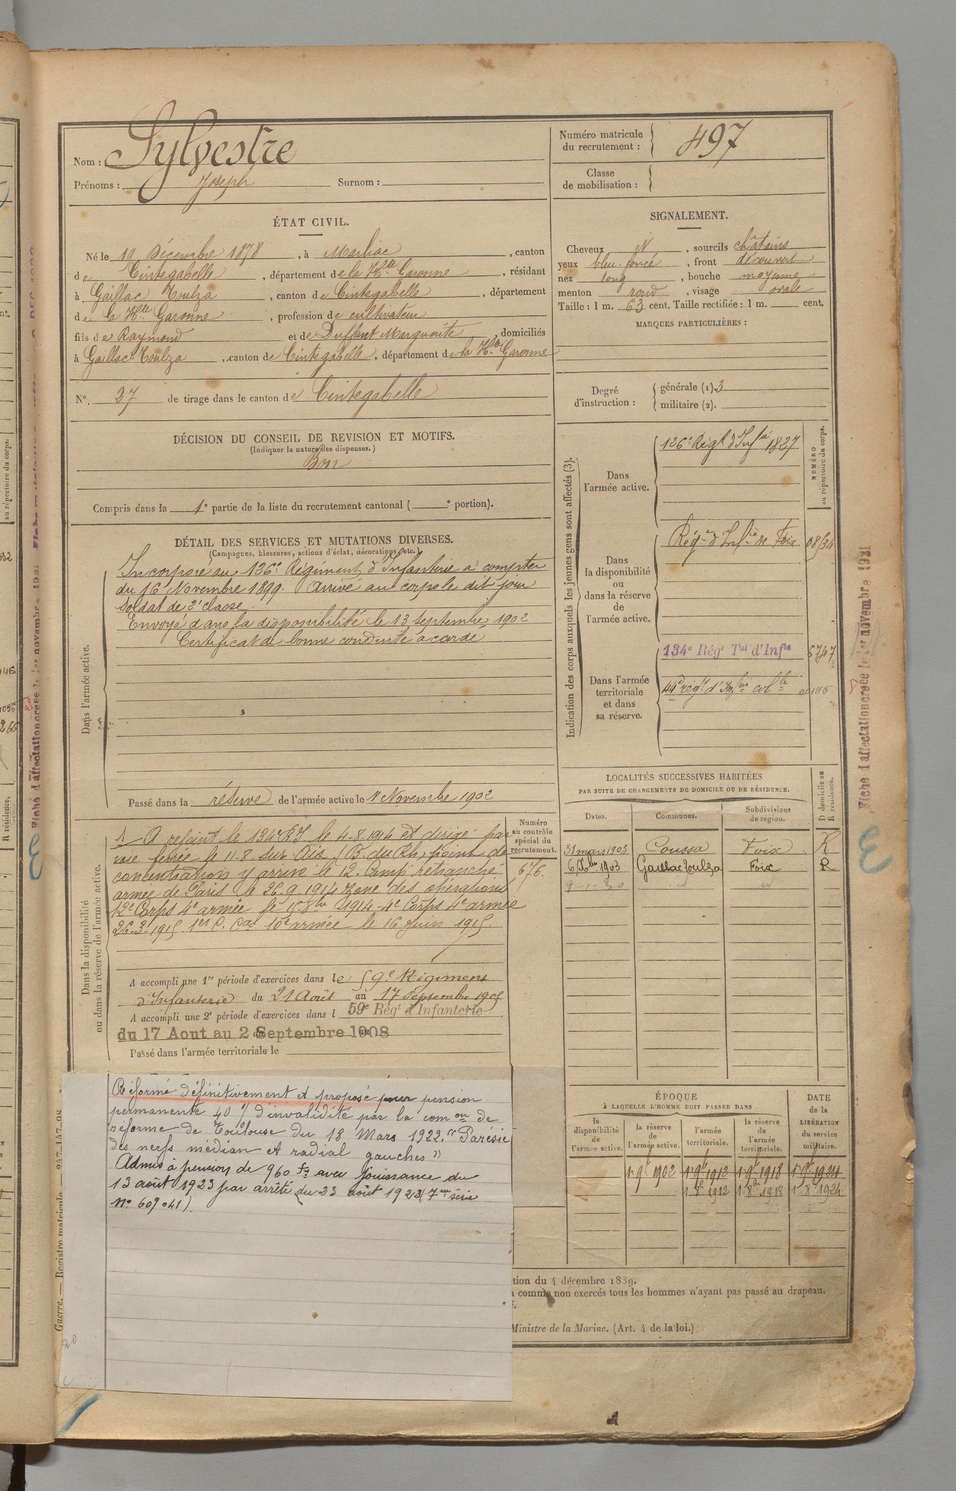 Nom : Sylvestre
Prénoms : Joseph Surnom :
Numéro matricule du recrutement : 497
Classe de mobilisation :
ÉTAT CIVIL.
Né le 10 Décembre 1878, à Marliac, canton
de Cintegabelle, département de la Hte Garonne, résidant
à Gaillac Toulza, canton de Cintegabelle, département
de la Hte Garonne, profession de cultivateur
fils de Raymond et de Duffaut Marguerite, domiciliés
à Gaillac-Toulza, canton de Cintegabelle, département de la Hte Garonne
N°. 37 de tirage dans le canton de Cintegabelle
SIGNALEMENT.
Cheveux id, sourcils châtains
yeux bleu foncé, front découvert
nez long, bouche moyenne
menton rond, visage ovale
Taille : 1 m. 63 cent. Taille rectifiée : 1 m. cent.
MARQUES PARTICULIÈRES :
Degré d'instruction : générale (1) 3
militaire (2).
DÉCISION DU CONSEIL DE REVISION ET MOTIFS.
(Indiquer la nature des dispenses.)
Bon
Compris dans la 1e partie de la liste du recrutement cantonal ( e portion).
DÉTAIL DES SERVICES ET MUTATIONS DIVERSES.
(Campagnes, blessures, actions d'éclat, décorations, etc.)
Dans l'armée active.
Incorporé au 126e Régiment d'Infanterie à compter
du 16 Novembre 1899. Arrivé au corps le dit jour
Soldat de 2e classe.
Envoyé dans la disponibilité le 13 septembre 1902
Certificat de bonne conduite accordé
Passé dans la réserve de l'armée active le 1er Novembre 1902
Indication des corps auxquels les jeunes gens sont affectés (3).
NUMÉRO au répertoire du corps.
Dans l'armée active.
126e Régt d'Infie 1827
Dans la disponibilité ou dans la réserve de l'armée active.
Régt d'Infie de Foix 08/34
Dans l'armée territoriale et dans sa réserve.
134e Régt Tal d'Infie 6747
44e regt d'Infie colle
LOCALITÉS SUCCESSIVES HABITÉES
PAR SUITE DE CHANGEMENTS DE DOMICILE OU DE RÉSIDENCE.
Dates. Communes. Subdivisions de région. D domicile ou R résidence.
31 mars 1903 Coussa Foix R
6 Xbre 1903 Gaillac Toulza Foix R
Dans la disponibilité ou dans la réserve de l'armée active.
Numéro au contrôle spécial du recrutement.
676
A rejoint le 134e RT le 4-8-1914 et dirigé par
voie ferrée le 11-8 sur Aix (B. du Rh) point de
concentration y arrive le 12. Camp retranché
armée de Paris le 26.9.1914 zone des opérations
12e Corps 4e armée le 1 8bre 1914 4e Corps 4e armée
26.3.1915. 10e armée le 16 Juin 1915.
A accompli une 1re période d'exercices dans le 59e Régiment
d'Infanterie du 21 Août au 17 Septembre 1905
A accompli une 2e période d'exercices dans l 59e Régt d'Infanterie
du 17 Aout au 2 Septembre 1908
Passé dans l'armée territoriale le
Réformé définitivement et proposé pour pension
permanente 40 % d'invalidité par la com on de
réforme de Toulouse du 18 Mars 1922. "Parésie
des nerfs médian et radial gauches"
Admis à pension de 960 fs avec jouissance du
13 août 1923 par arrêté du 23 août 1923 (7me série
N° 607041).
ÉPOQUE
À LAQUELLE L'HOMME DOIT PASSER DANS
la disponibilité de l'armée active. la réserve de l'armée active. l'armée territoriale. la réserve de l'armée territoriale. DATE de la LIBÉRATION du service militaire.
1 9bre 1902 1 9bre 1912 1 9bre 1918 1 9bre 1924
1 8bre 1912 1 8bre 1918 1 8bre 1924
tion du 4 décembre 1889.
comme non exercés tous les hommes n'ayant pas passé au drapeau.
Ministre de la Marine. (Art. 4 de la loi.)
Fiche d'affectation créée le 1er novembre 1921
Guerre. — Registre matricule.